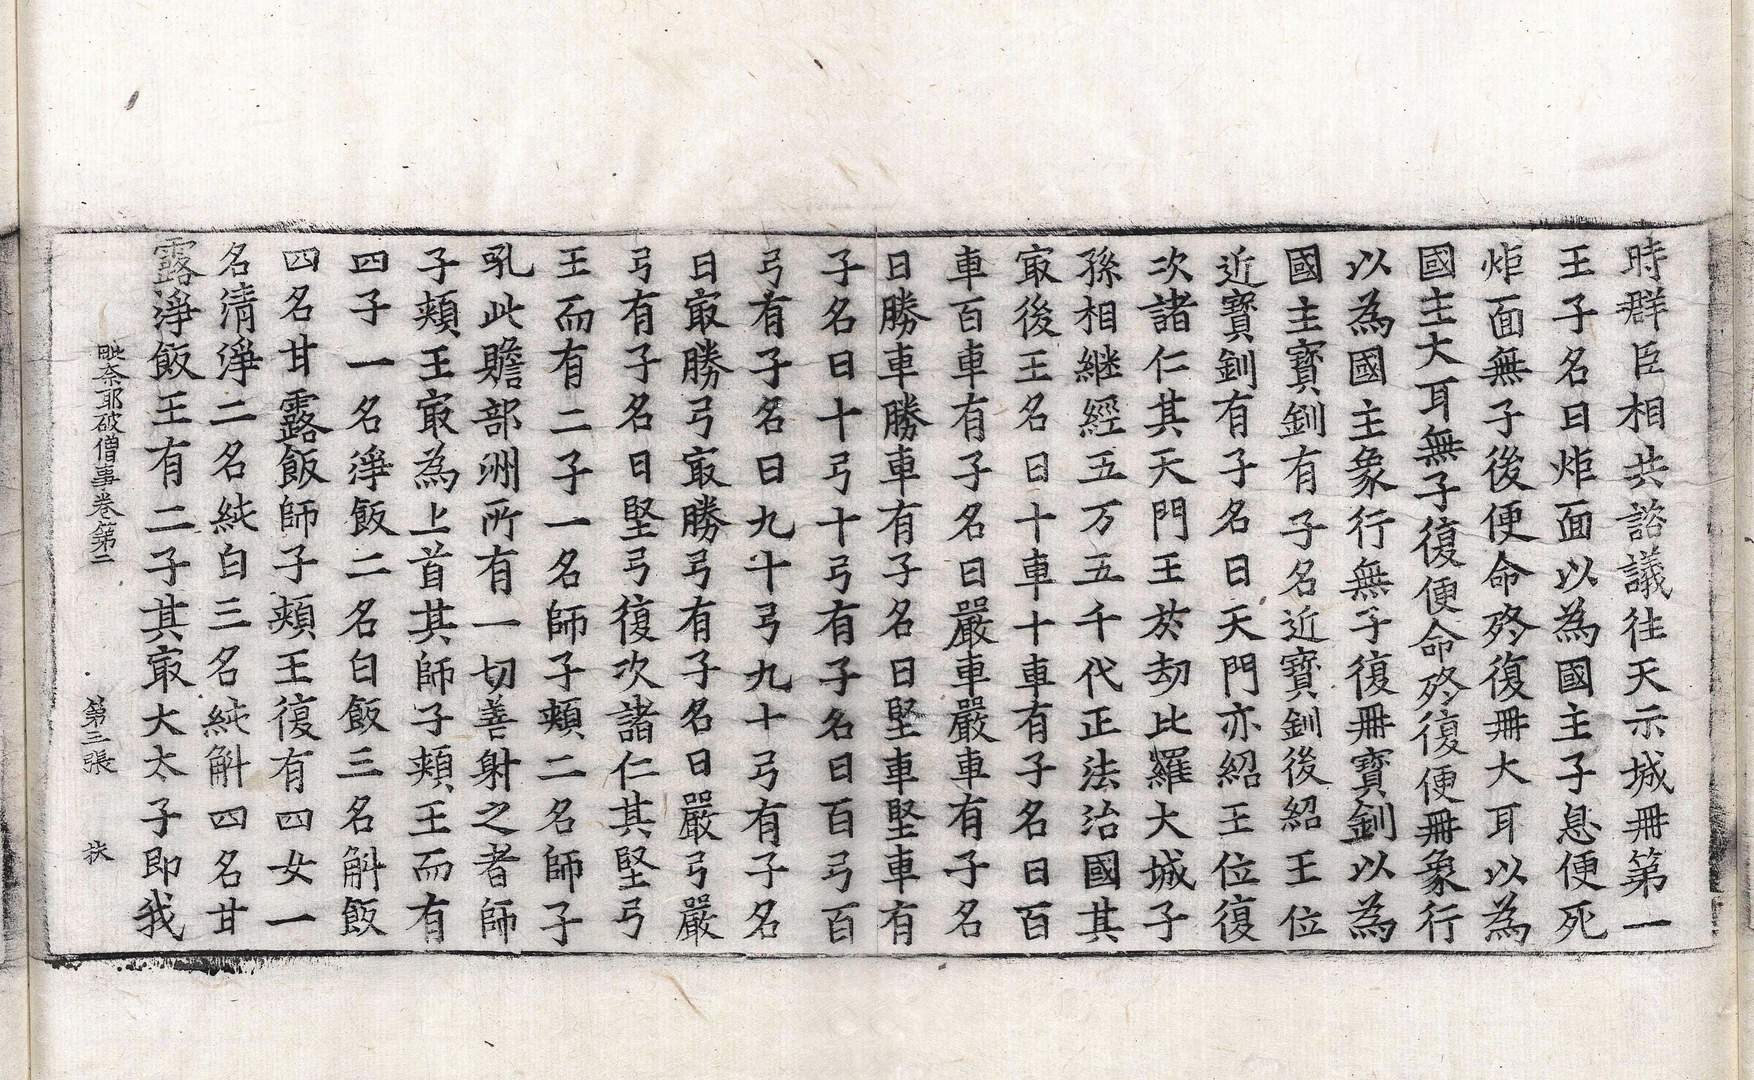 時群臣相共諮議往天示城冊第一
王子名曰炬面以為國主子息便死
炬面無子後便命終復冊大耳以為
國主大耳無子復便命終復便冊象行
以為國主象行無子復冊寶釧以為
國主寶釧有子名近寶釧後紹王位
近寶釧有子名曰天門亦紹王位復
次諸仁其天門王於劫比羅大城子
孫相継經五万五千代正法治國其
冣後王名曰十車十車有子名曰百
車百車有子名曰嚴車嚴車有子名
曰勝車勝車有子名曰堅車堅車有
子名曰十弓十弓有子名曰百弓百
弓有子名曰九十弓九十弓有子名
曰冣勝弓冣勝弓有子名曰嚴弓嚴
弓有子名曰堅弓復次諸仁其堅弓
王而有二子一名師子頬二名師子
吼此贍部洲所有一切善射之者師
子頬王冣為上首其師子頬王而有
四子一名淨飯二名白飯三名斛飯
四名甘露飯師子頬王復有四女一
名清淨二名純白三名純斛四名甘
露淨飯王有二子其冣大太子即我
毗奈耶破僧事卷第二 第三張 扶